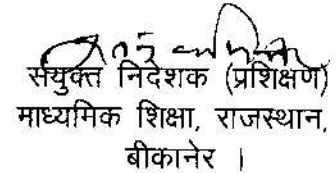 संयुक्त निदेशक (प्रशिक्षण)
माध्यमिक शिक्षा, राजस्थान,
बीकानेर ।